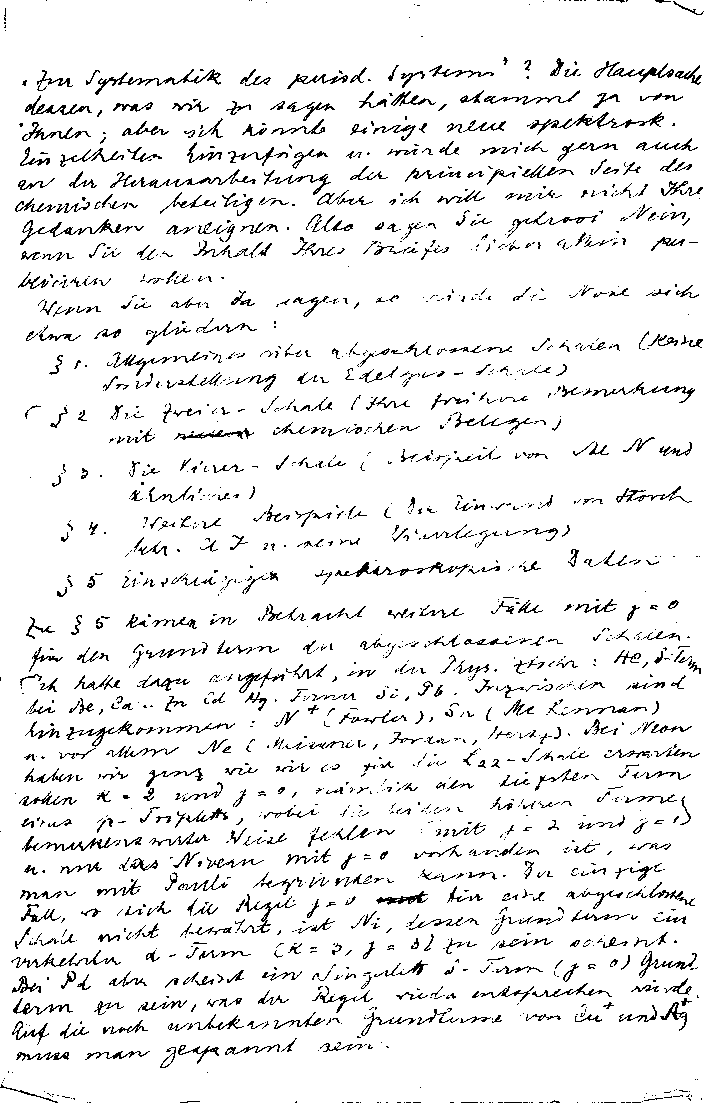 „Zur Systematik des period. Systems"? Die Hauptsache
dessen, was wir zu sagen hätten, stammt ja von
Ihnen; aber ich könnte einige neue spektrosk.
Einzelheiten hinzufügen u. würde mich gern auch
an der Herausarbeitung der prinzipiellen Seite des
chemischen beteiligen. Aber ich will mir nicht Ihre
Gedanken aneignen. Also sagen Sie getrost Nein,
wenn Sie den Inhalt Ihres Briefes lieber allein pu-
blicieren wollen.
Wenn Sie aber Ja sagen, so würde die Note sich
etwa so gliedern:
§ 1. Allgemeines über abgeschlossene Schalen (Keine
Sonderstellung der Edelgas-Schale)
§ 2 Die Zweier-Schale (Ihre frühere Bemerkung
mit chemischen Belegen)
§ 3. Die Vierer-Schale (Beispiel von N und
ähnliches)
§ 4. Weitere Beispiele (Der Einwand von Storch
betr. J u. seine Widerlegung)
§ 5 Einschlägige spektroskopische Daten
Zu § 5 kämen in Betracht weitere Fälle mit j = 0
für den Grundterm der abgeschlossenen Schalen.
Ich hatte dazu angeführt, in der Phys. Ztschr: He, S-Term
bei Be, Ca.. Zn Cd Hg. Ferner Si, Pb. Inzwischen sind
hinzugekommen: N⁺ (Fowler), Sn (Mc Lennan)
u. vor allem Ne (Meissner, Jordan, Hertz). Bei Neon
haben wir ganz wie wir es für die L₂₂-Schale erwarten
sollen k = 2 und j = 0, nämlich den tiefsten Term
eines p-Tripletts, wobei die beiden höheren Terme
bemerkenswerter Weise fehlen (mit j = 2 und j = 1)
u. nur das Niveau mit j = 0 vorhanden ist, was
man mit Pauli begründen kann. Der einzige
Fall, wo sich die Regel j = 0 für eine abgeschlossene
Schale nicht bewährt, ist Ni, dessen Grundterm ein
verkehrter d-Term (k = 3, j = 3) zu sein scheint.
Bei Pd aber scheint ein Singulett S-Term (j = 0) Grund
term zu sein, was der Regel wieder entsprechen würde.
Auf die noch unbekannten Grundterme von Cu⁺ und Ag⁺
muss man gespannt sein.